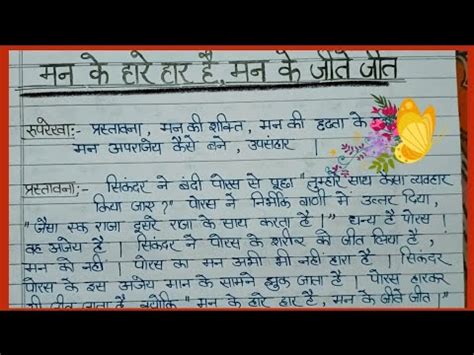 मन के हारे हार है, मन के जीते जीत
रूपरेखा:- प्रस्तावना, मन की शक्ति, मन की दृढता के
मन अपराजेय कैसे बने, उपसंहार ।
प्रस्तावना:- सिकंदर ने बंदी पोरस से पूछा "तुम्हारे साथ कैसा व्यवहार
किया जाए ?" पोरस ने निर्भीक वाणी में उत्तर दिया,
" जैसा एक राजा दूसरे राजा के साथ करता है ।" धन्य है पोरस ।
वह अजेय है । सिकंदर ने पोरस के शरीर को जीत लिया है,
मन को नहीं । पोरस का मन अभी भी नहीं हारा है । सिकंदर
पोरस के इस अजेय मान के सामने झुक जाता है । पोरस हारकर
भी जीत जाता है क्योंकि " मन के हारे हार है, मन के जीते जीत ।"